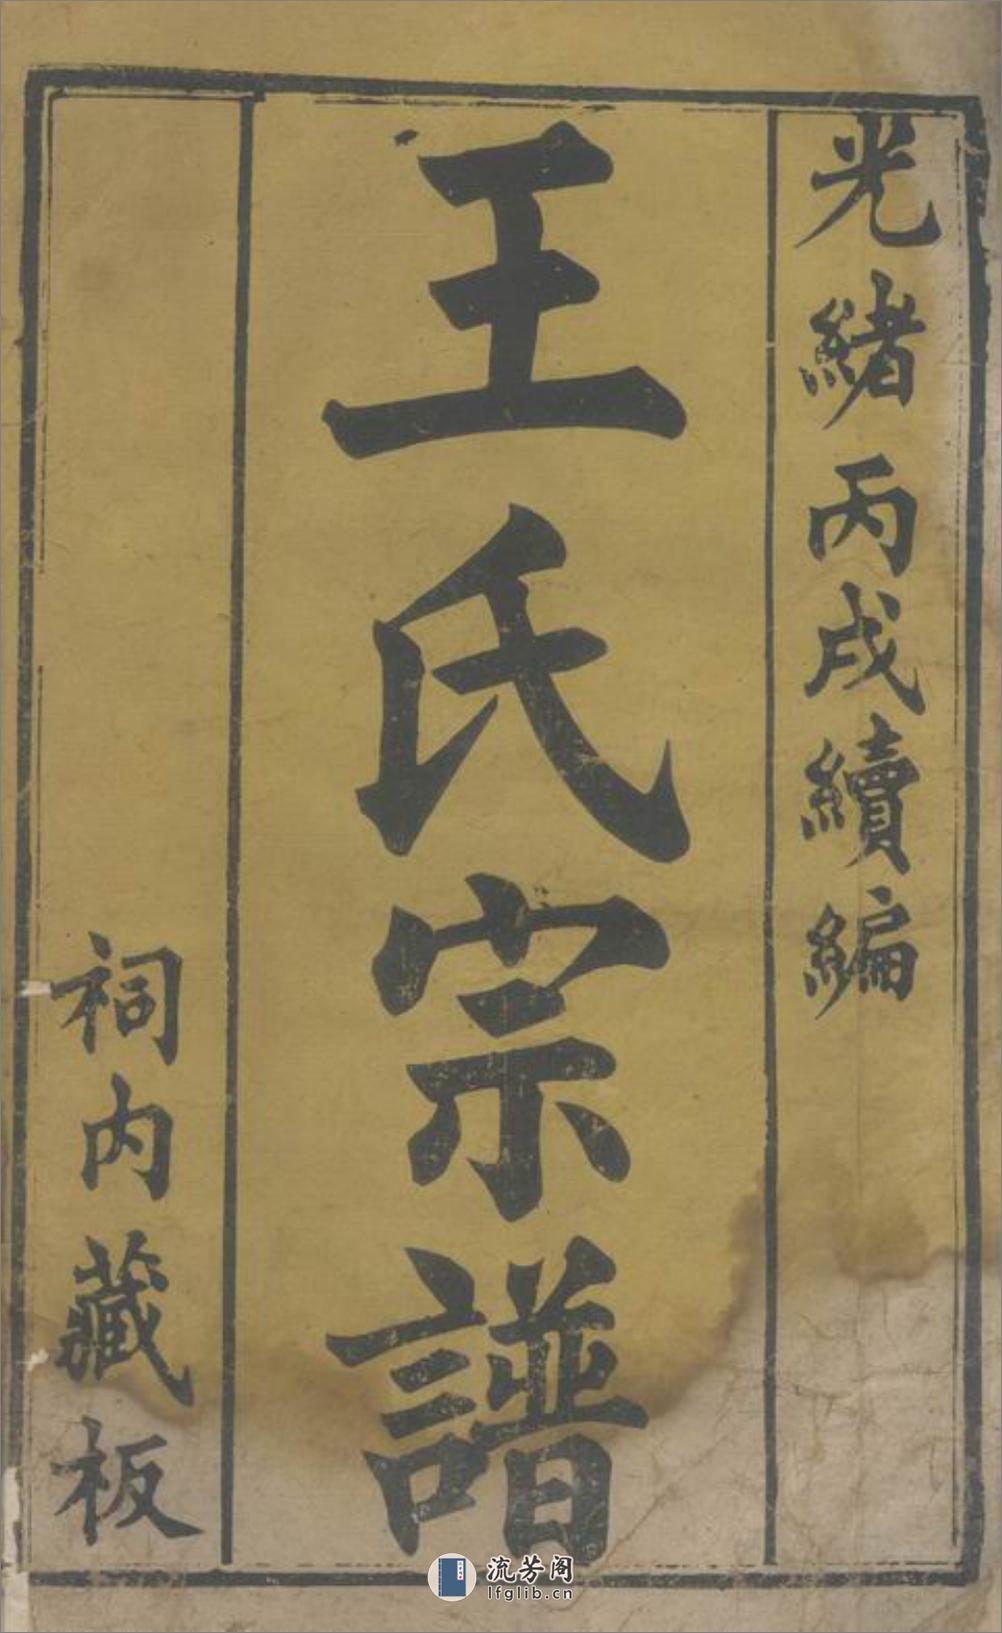 光緒丙戌續編
王氏宗譜
祠內藏板
流芳阁
lfglib.cn